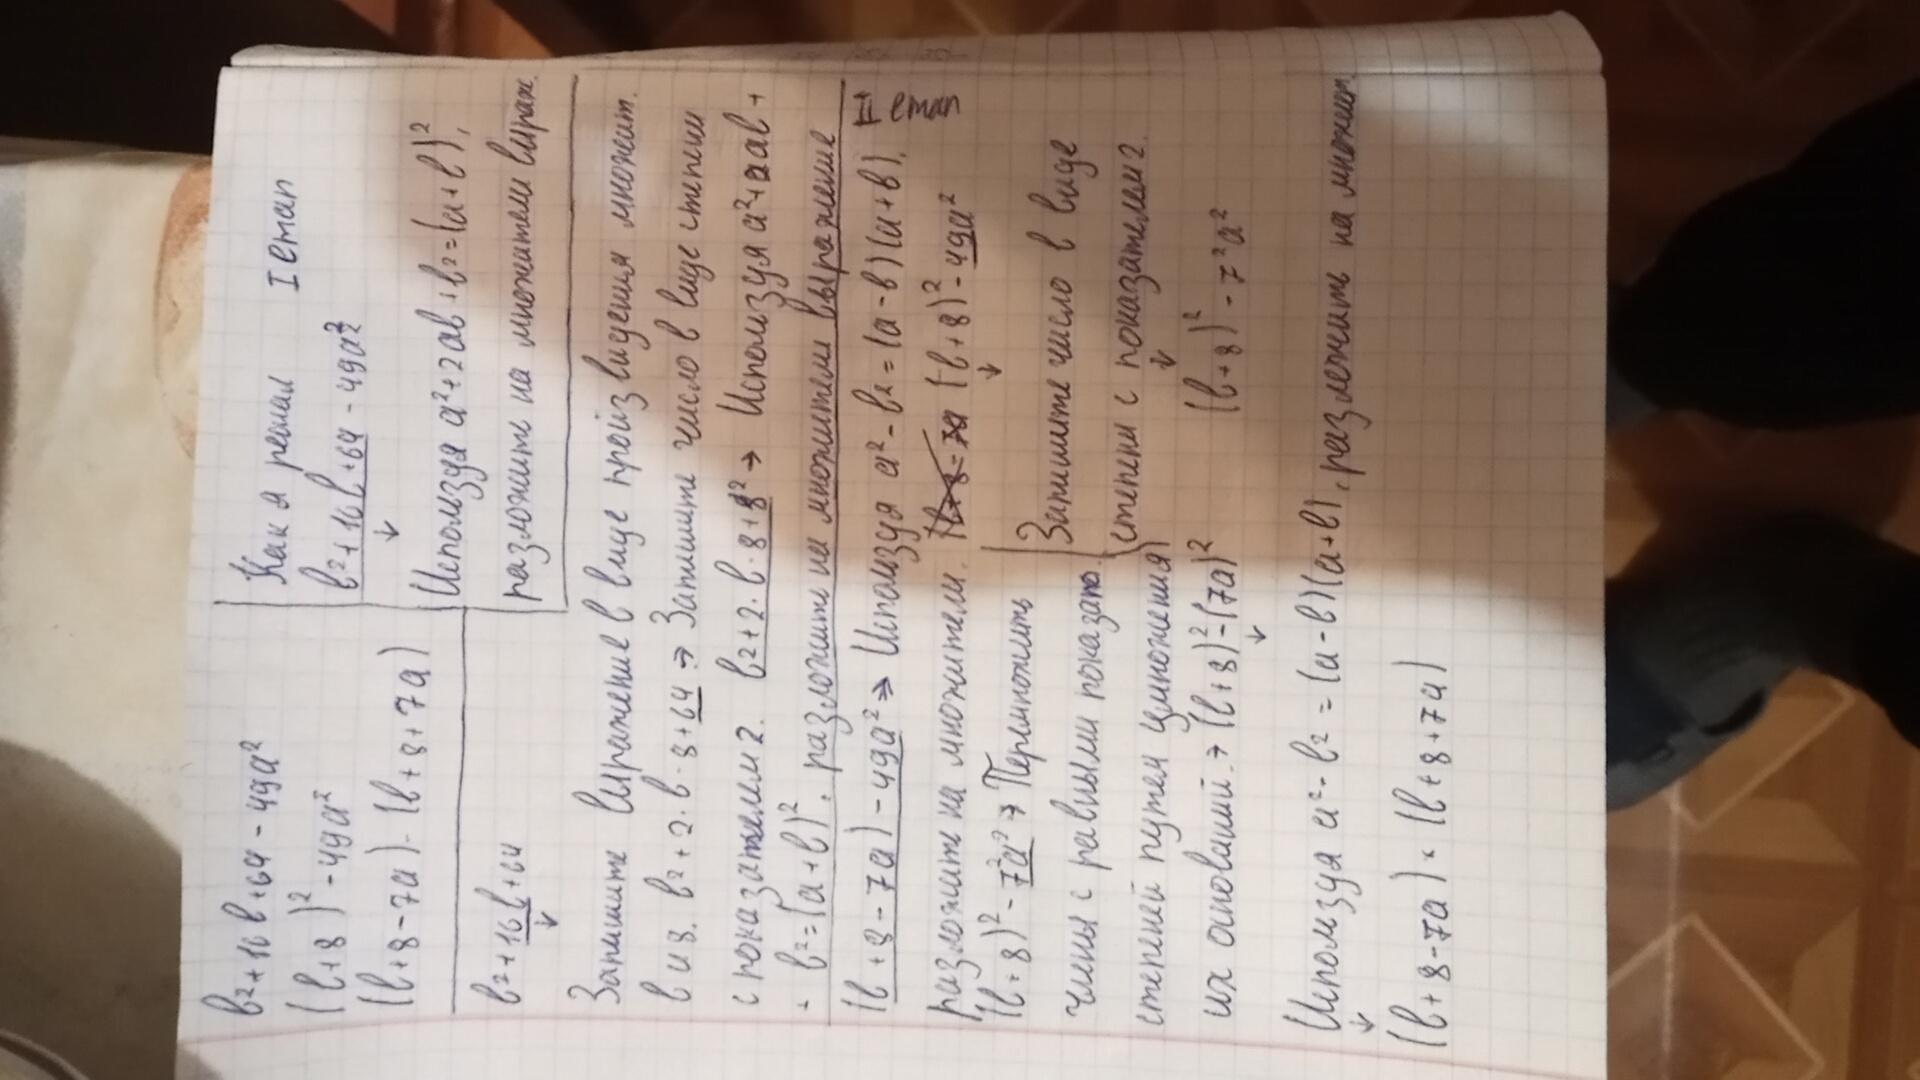 в²+16в+64-49а²
(в+8)²-49а²
(в+8-7а)·(в+8+7а)
Как я решал I етап
в²+16в+64-49а²
↓
Используя а²+2ав+в²=(а+в)²,
разложить на множители выраж.
в²+16в+64
↓
Запишите выражение в виде произведения множит.
в и 8. в²+2·в·8+64 → Запишите число в виде степени
с показателем 2. в²+2·в·8+8² → Используя а²+2ав+
+ в²=(а+в)², разложите на множители выражение
(в+8-7а)-49а² → Используя а²-в²=(а-в)(а+в), II етап
разложите на множители. (в+8)²-49а²
↓
(в+8)²-7²а² → Перемножить
члены с равными показат.
степеней путем умножения
их оснований. → (в+8)²-(7а)²
↓
Запишите число в виде
степени с показателем 2.
↓
(в+8)²-7²а²
Используя а²-в²=(а-в)(а+в), разложить на множит.
↓
(в+8-7а)×(в+8+7а)